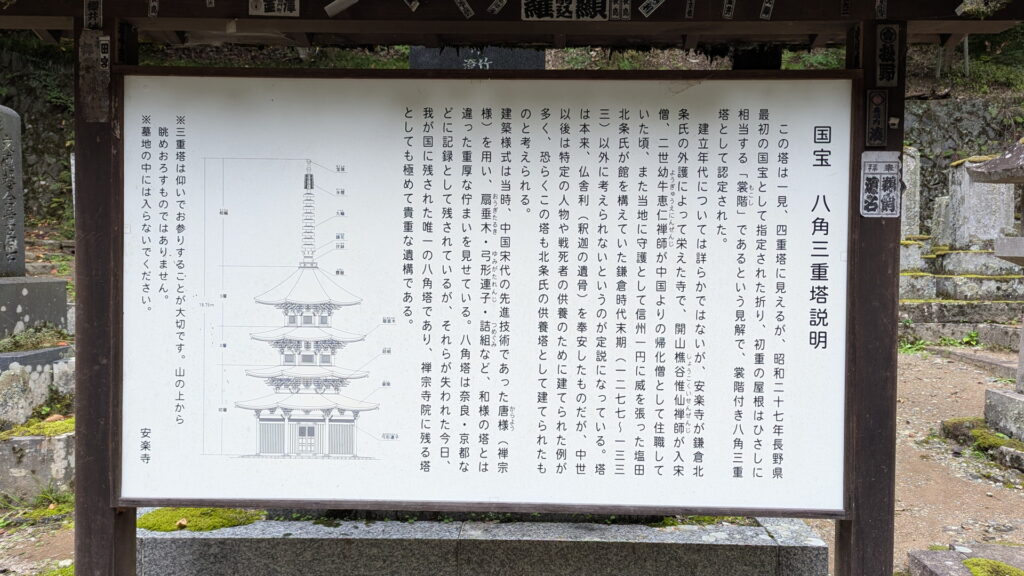 国宝　八角三重塔説明
この塔は一見、四重塔に見えるが、昭和二十七年長野県
最初の国宝として指定された折り、初重の屋根はひさしに
相当する「裳階」であるという見解で、裳階付き八角三重
もこし
塔として認定された。
建立年代については詳らかではないが、安楽寺が鎌倉北
条氏の外護によって栄えた寺で、開山樵谷惟仙禅師が入宋
しょうこくいせんぜんじ
僧、二世幼牛恵仁禅師が中国よりの帰化僧として住職して
ようぎゅうえにんぜんじ
いた頃、また当地に守護として信州一円に威を張った塩田
北条氏が館を構えていた鎌倉時代末期（一二七七～一三三
三）以外に考えられないというのが定説になっている。塔
は本来、仏舎利（釈迦の遺骨）を奉安したものだが、中世
以後は特定の人物や戦死者の供養のために建てられた例が
多く、恐らくこの塔も北条氏の供養塔として建てられたも
のと考えられる。
建築様式は当時、中国宋代の先進技術であった唐様（禅宗
からよう
様）を用い、扇垂木・弓形連子・詰組など、和様の塔とは
おうぎたるき
ゆみがたれんじ
つめぐみ
違った重厚な佇まいを見せている。八角塔は奈良・京都な
どに記録として残されているが、それらが失われた今日、
我が国に残された唯一の八角塔であり、禅宗寺院に残る塔
としても極めて貴重な遺構である。
※三重塔は仰いでお参りすることが大切です。山の上から
眺めおろすものではありません。
※墓地の中には入らないでください。
安楽寺